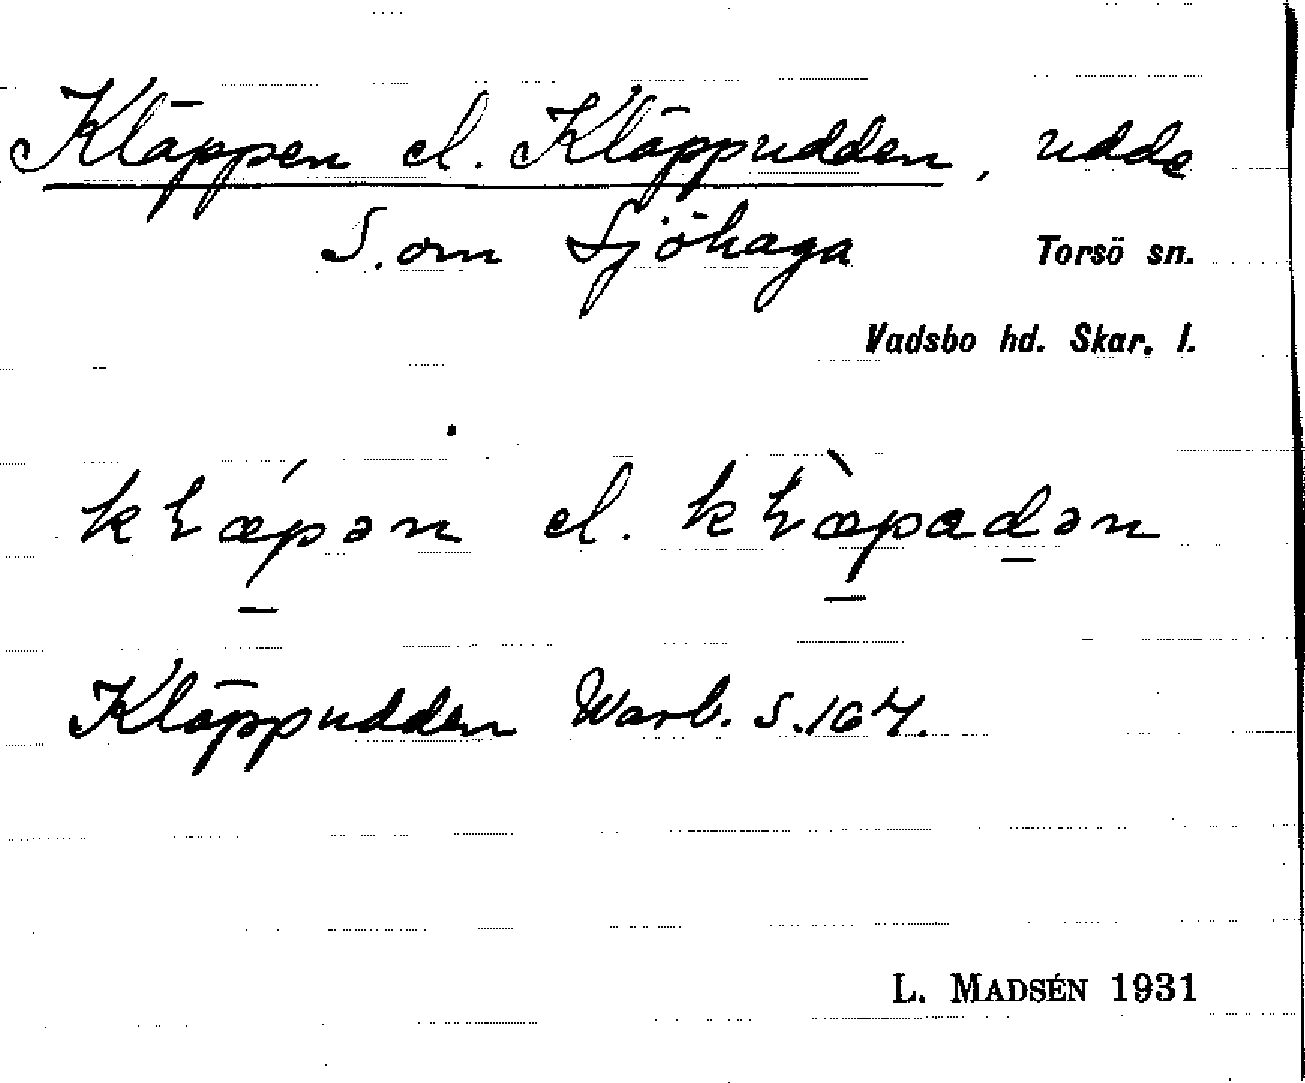 Kläppen el. Kläppudden, udde
S. om Sjöhaga Torsö sn.
Vadsbo hd. Skar. l.
el.
Kläppudden Warb. S. 167.
L. MADSÉN 1931